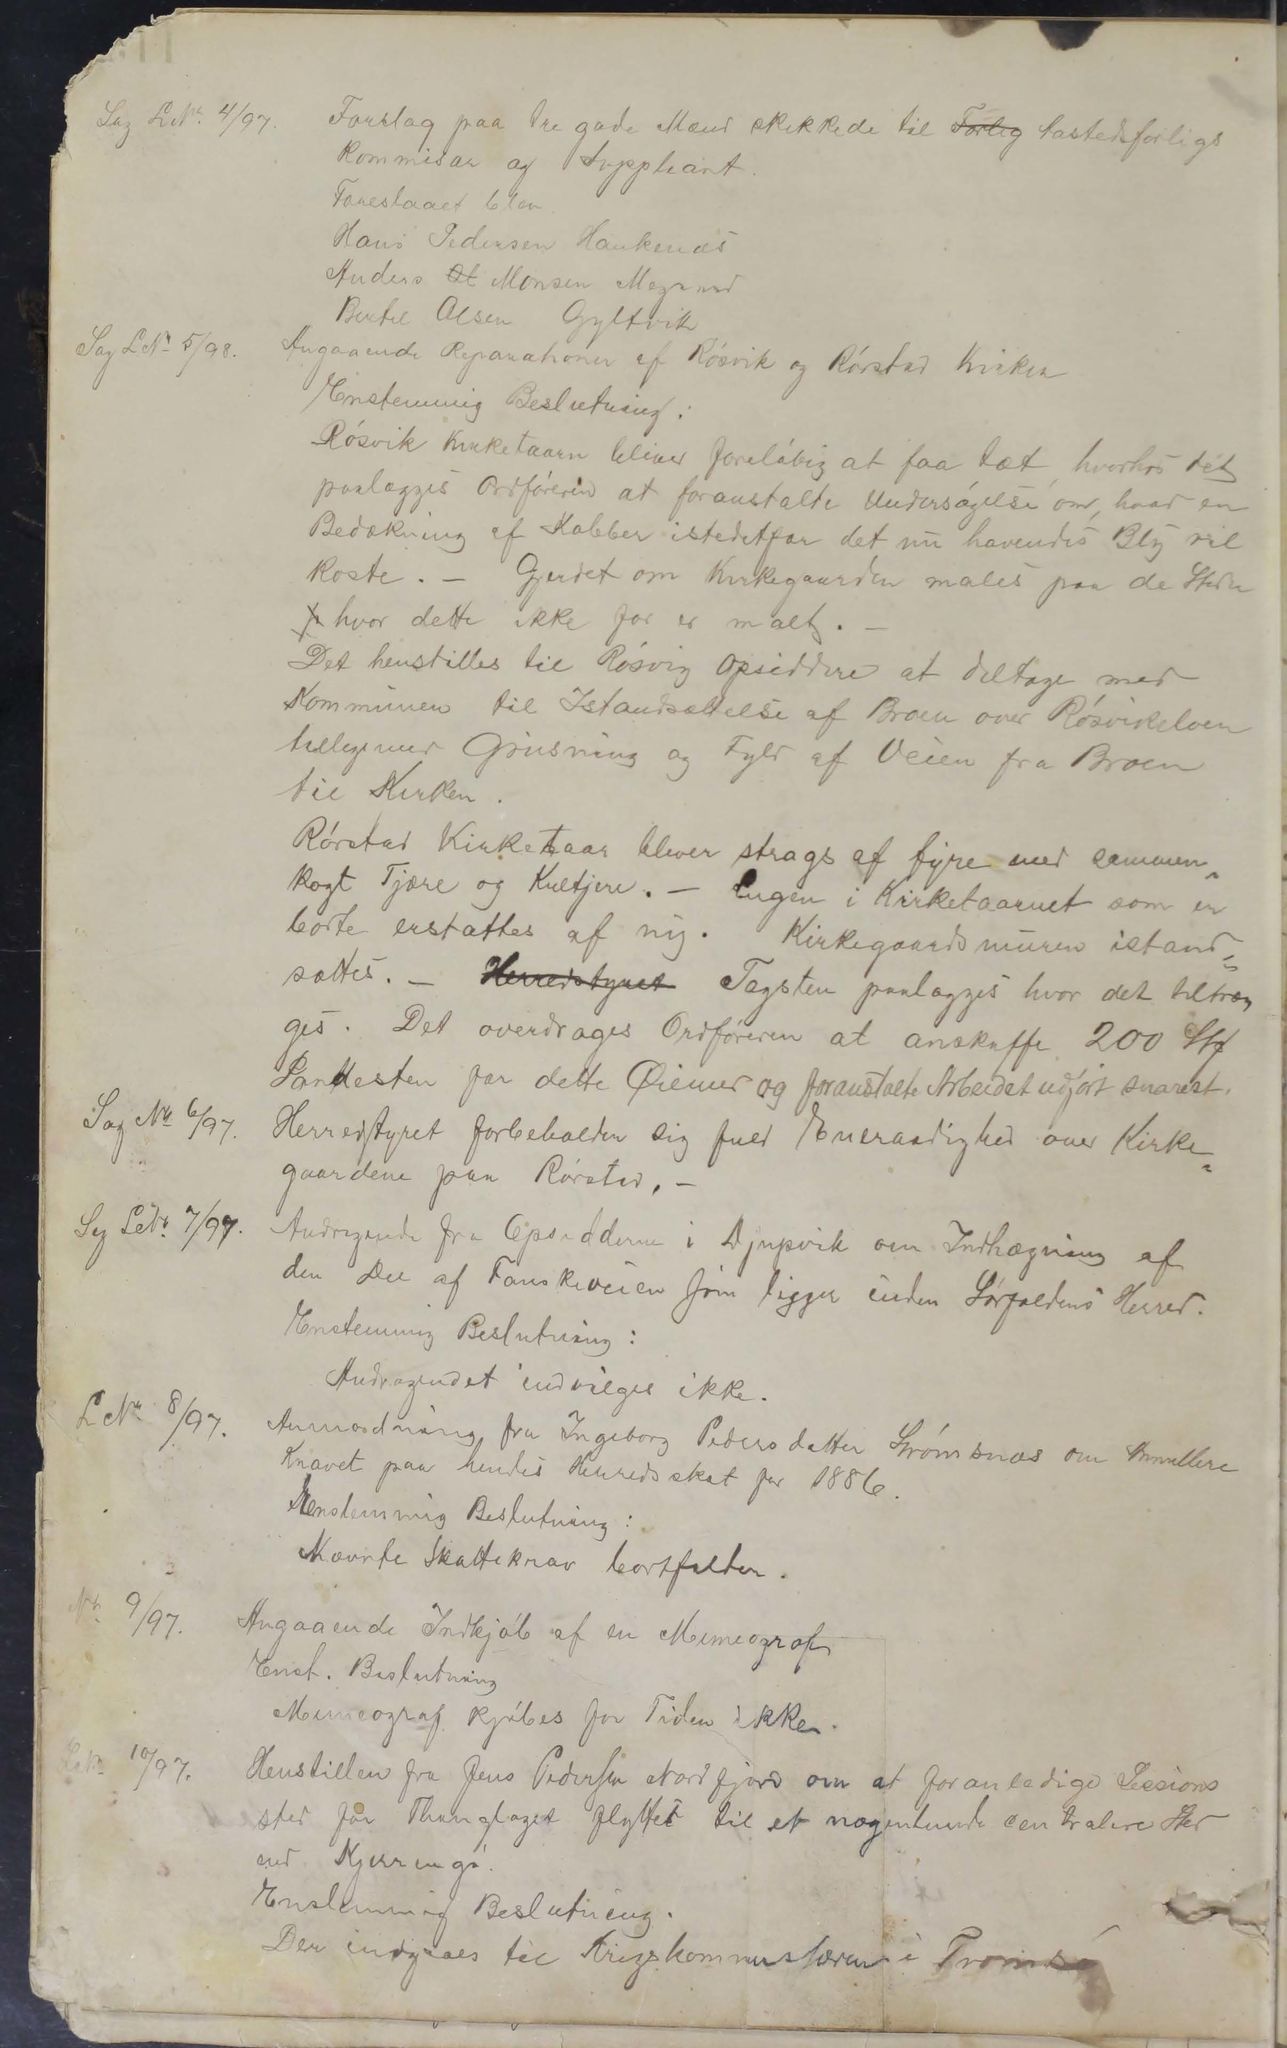 Sag LNr. 4/97. Forslag paa tre gode Mænd skikkede til Forlig tastedsforligs
Kommisær og Suppleant.
Foreslaaet blev
Hans Pedersen Haukenæs
Anders Ot Monsen Megaard
Bertel Olsen Gyltvik
Sag LNr 5/98. Angaaende Reparationer af Rösvik og Rörstad Kirker
Enstemmig Beslutning:
Rösvik Kirketaarn bliver foreløbig at faa tæt, hvorhos det
paalægges Ordföreren at foranstalte Undersøgelse om, hvad en
Bedækning af Kobber istedetfor det nu havendes Bly vil
koste. — Gjerdet om Kirkegaarden males paa de Steder
hvor dette ikke før er malt. —
Det henstilles til Rösvig Opsiddere at deltage med
Kommunen til Istandsættelse af Broen over Rösvikelven
tilligemed Grusning og Fyld af Veien fra Broen
til Kirken.
Rörstad Kirketaar bliver strags af fyre med sammen„
kogt Tjære og Kultjere. — Lugen i Kirketaarnet som er
borte erstattes af ny. Kirkegaardsmuren istand„
sættes. — Herredstyret Tagsten paalægges hvor det tiltræn
ges. Det overdrages Ordföreren at anskaffe 200 Stk
Pandesten for dette Øiemed og foranstalte Arbeidet udfört snarest.
Sag Nr 6/97. Herredstyret forbeholder sig fuld Eneraadighed over Kirke„
gaardene paa Rörstad. —
Sag LNr. 7/97. Andragende fra Opsidderne i Djupvik om Indhægning af
den Del af Fauskeveien som ligger inden Sörfoldens Herred.
Enstemmig Beslutning:
Andragendet indvilges ikke.
LNr 8/97. Anmodning fra Ingeborg Pedersdatter Strömsnæs om Annullere
Kravet paa hendes Herredsskat for 1886.
Enstemmig Beslutning:
Nævnte Skattekrav bortfalder.
Nr. 9/97. Angaaende Indkjöb af en Mimeograf
Enst. Beslutning
Mimeograf kjöbes for Tiden ikke.
LNr 10/97. Henstillen fra Jens Pedersen Nordfjord om at foranledige Sessions
sted for flyttet til et nogenlunde centralere Sted
end Kjerringö.
Enstemmig Beslutning.
Der indgaaes til Krigskommissæren i Tromsö